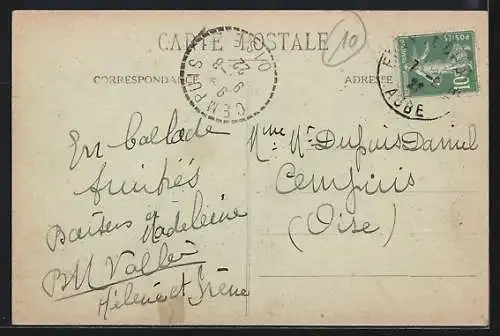 CARTE POSTALE
10
CORRESPONDANCE
ADRESSE
CEMPUIS
OISE
AUBE
POSTES
10
En ballade
Amitiés
Baisers à Madeleine
BM Vallée
Hélène et Irène
Mme Dupuis Daniel
Cempuis
(Oise)